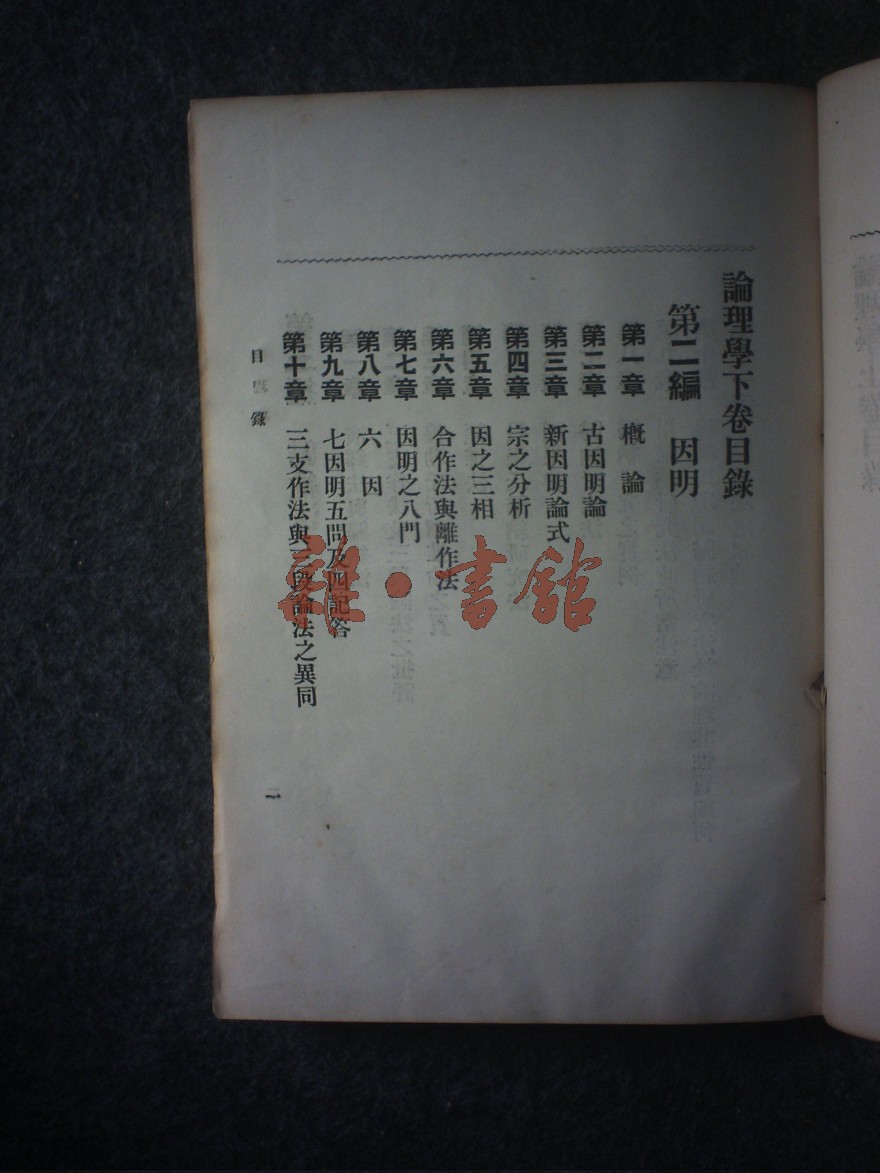 論理學下卷目錄
第二編　因明
第一章　概　論
第二章　古因明論
第三章　新因明論式
第四章　宗之分析
第五章　因之三相
第六章　合作法與離作法
第七章　因明之八門
第八章　六　因
第九章　七因明五問及四記答
第十章　三支作法與三段論法之異同
目　錄
二
雜·書館